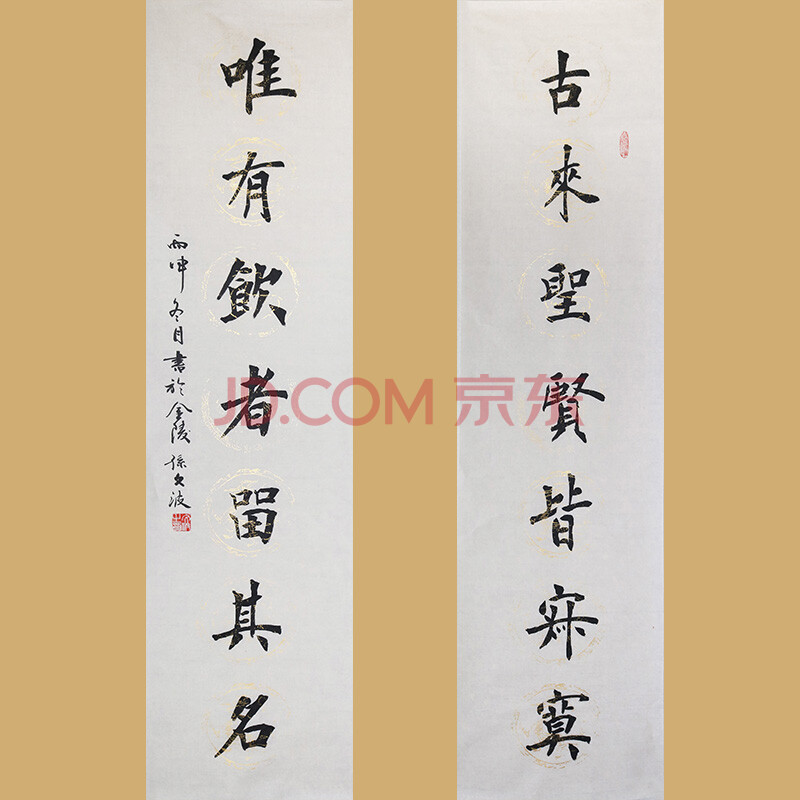 古來聖賢皆寂寞
唯有飲者留其名
丙申冬月書於金陵 孫
JD.COM 京东